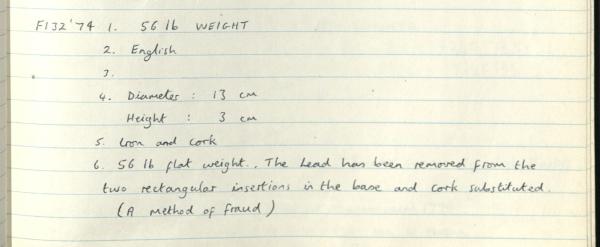 F132'74 1. 56 lb WEIGHT
2. English
3.
4. Diameter : 13 cm
Height : 3 cm
5. Iron and cork
6. 56 lb flat weight.. The lead has been removed from the
two rectangular insertions in the base and cork substituted.
(A method of fraud)